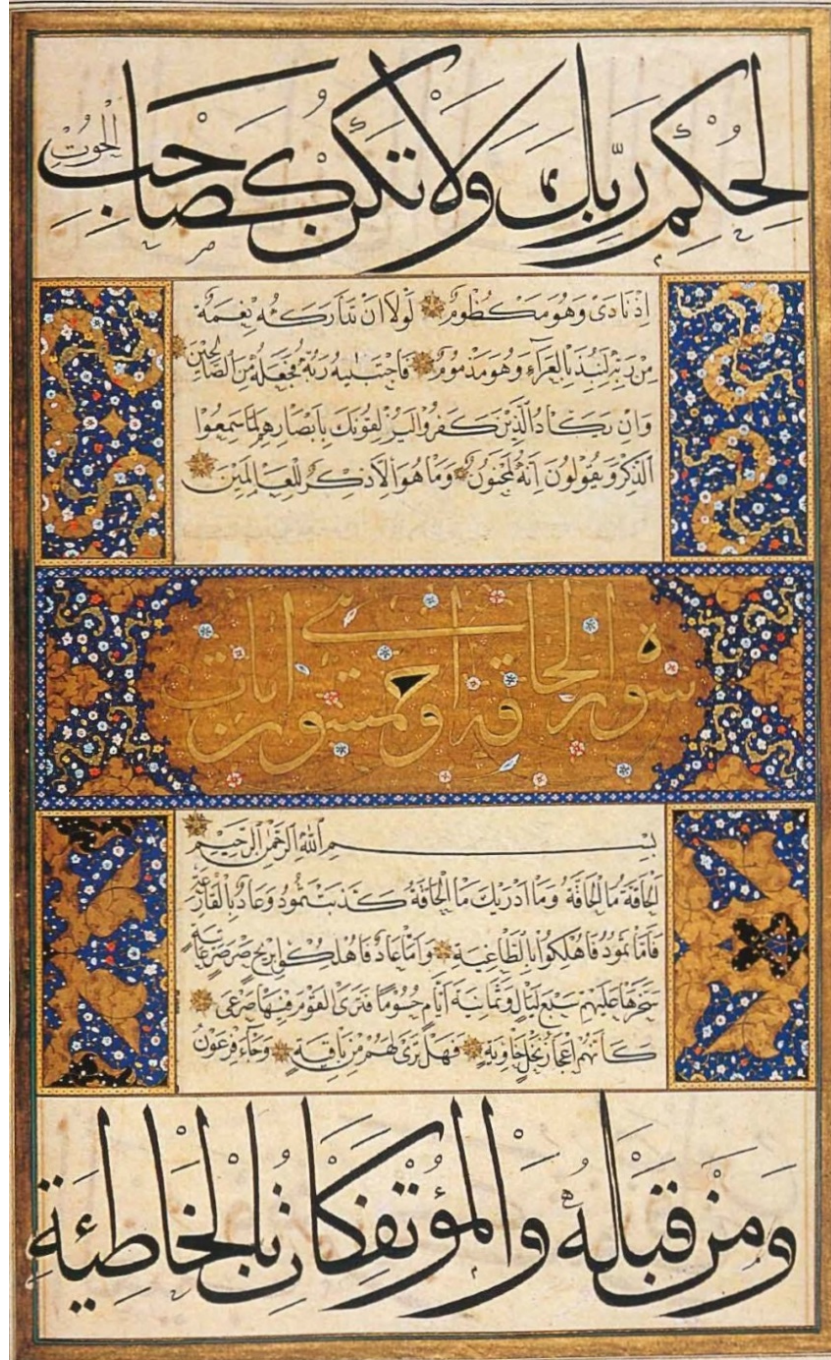 لِحُكْمِ رَبِّكَ وَلَا تَكُنْ كَصَاحِبِ الْحُوتِ
اِذْ نَادَىٰ وَهُوَ مَكْظُومٌ لَوْلَا اَنْ تَدَارَكَهُ نِعْمَةٌ
مِنْ رَبِّهِ لَنُبِذَ بِالْعَرَاءِ وَهُوَ مَذْمُومٌ فَاجْتَبٰيهُ رَبُّهُ فَجَعَلَهُ مِنَ الصَّالِحِينَ
وَاِنْ يَكَادُ الَّذِينَ كَفَرُوا لَيُزْلِقُونَكَ بِاَبْصَارِهِمْ لَمَّا سَمِعُوا
الذِّكْرَ وَيَقُولُونَ اِنَّهُ لَمَجْنُونٌ وَمَا هُوَ اِلَّا ذِكْرٌ لِلْعَالَمِينَ
سورة الحاقة احدى وخمسون ايات
بِسْمِ اللهِ الرَّحْمٰنِ الرَّحِيمِ
اَلْحَاقَّةُ مَا الْحَاقَّةُ وَمَا اَدْرٰيكَ مَا الْحَاقَّةُ كَذَّبَتْ ثَمُودُ وَعَادٌ بِالْقَارِعَةِ
فَاَمَّا ثَمُودُ فَاُهْلِكُوا بِالطَّاغِيَةِ وَاَمَّا عَادٌ فَاُهْلِكُوا بِرِيحٍ صَرْصَرٍ عَاتِيَةٍ
سَخَّرَهَا عَلَيْهِمْ سَبْعَ لَيَالٍ وَثَمَانِيَةَ اَيَّامٍ حُسُومًا فَتَرَى الْقَوْمَ فِيهَا صَرْعَىٰ
كَاَنَّهُمْ اَعْجَازُ نَخْلٍ خَاوِيَةٍ فَهَلْ تَرَىٰ لَهُمْ مِنْ بَاقِيَةٍ وَجَاءَ فِرْعَوْنُ
وَمَنْ قَبْلَهُ وَالْمُؤْتَفِكَاتُ بِالْخَاطِئَةِ